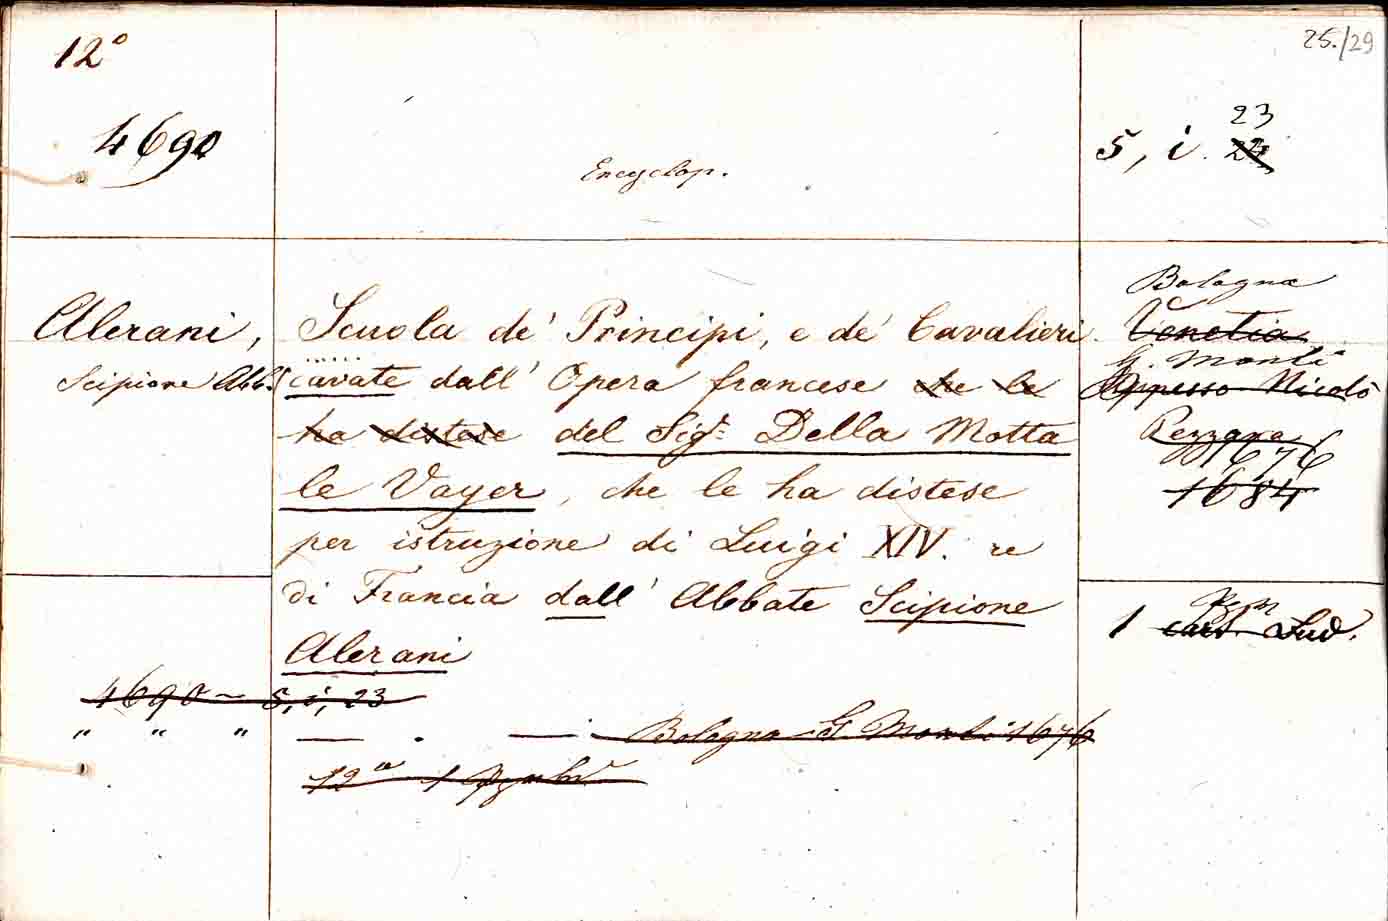 12°
25./29
4690
Encyclop.
23
5, i. 24
Alerani,
Scipione Abb.
Scuola de' Principi, e de' Cavalieri
cavate dall' Opera francese che le
ha distese del Sig.r Della Motta
le Vayer, che le ha distese
per istruzione di Luigi XIV. re
di Francia dall' Abbate Scipione
Alerani
Bologna
Venetia
G. Monti
Appresso Nicolò
Pezzana
1676
1684
1 cart. Sud.
4690 ~ 5, i, 23
" " " — . — . Bologna G. Monti 1676
12° 1